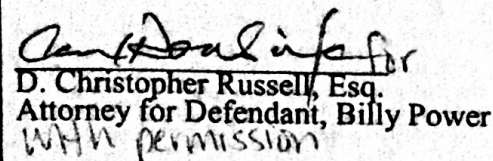 for
D. Christopher Russell, Esq.
Attorney for Defendant, Billy Power
with permission